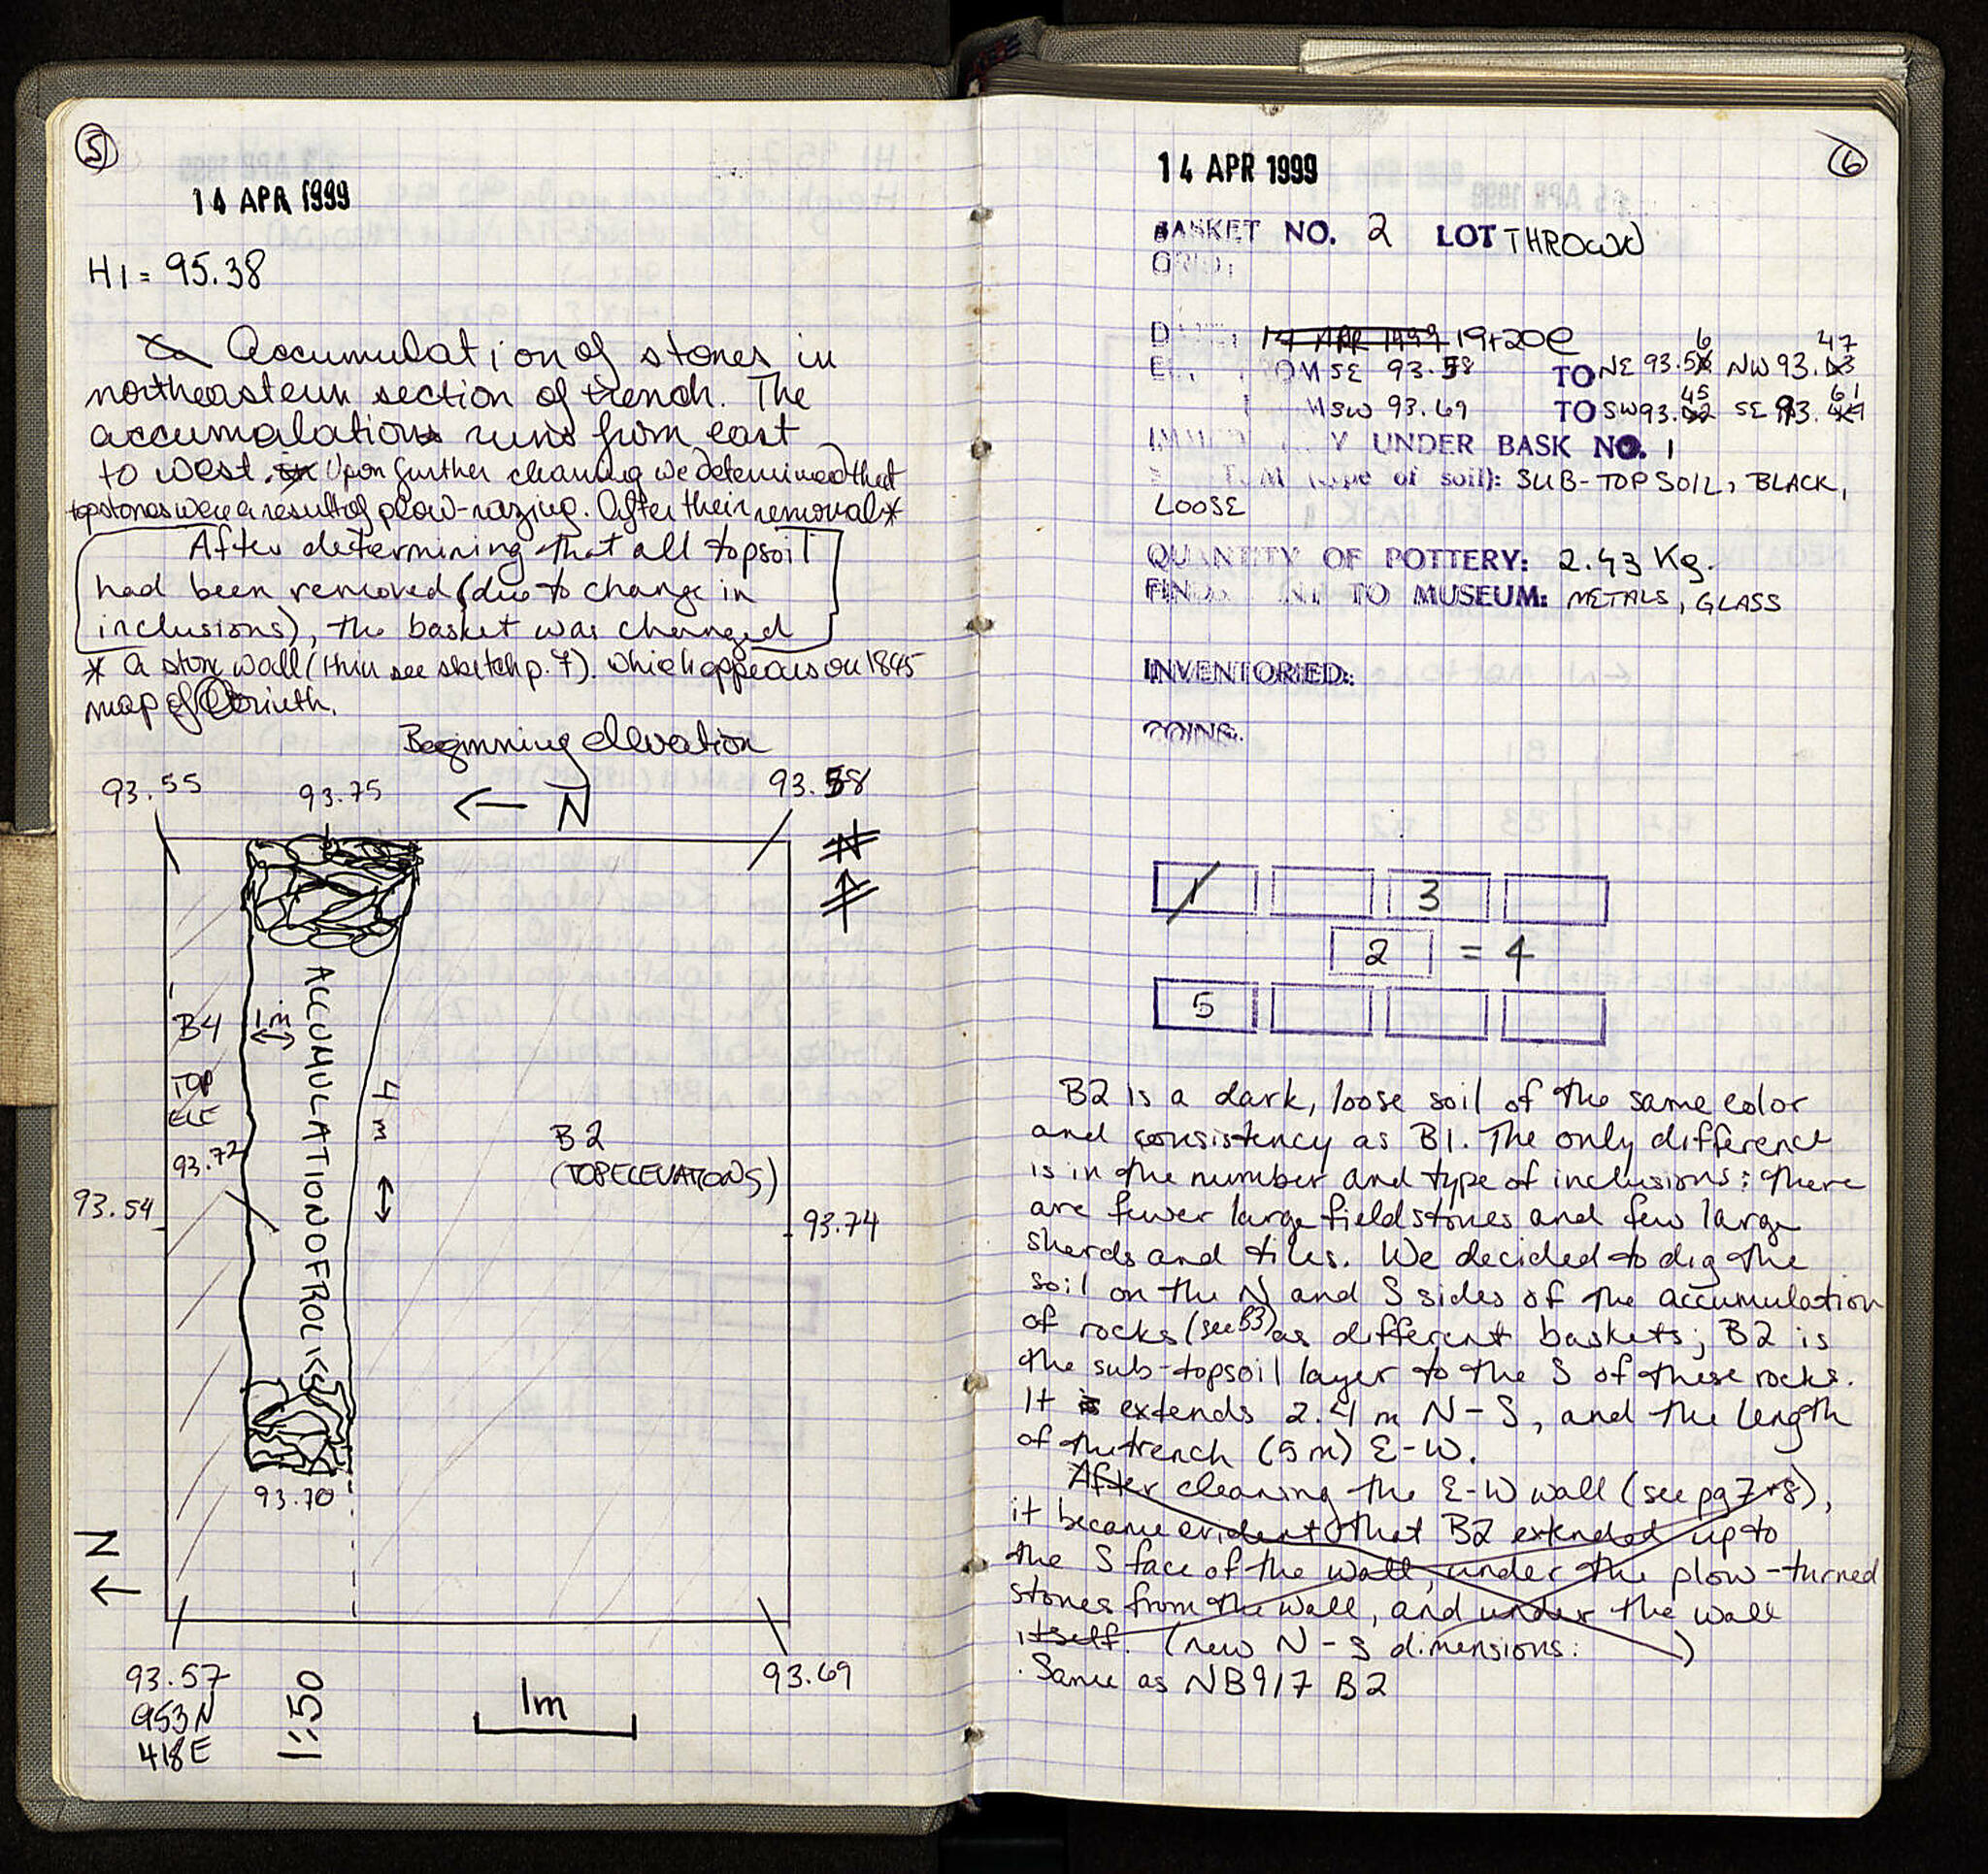 5
14 APR 1999
HI = 95.38
Accumulation of stones in
northeastern section of trench. The
accumulation runs from east
to west. Upon further cleaning we determined that
top stones were a result of plow-razing. After their removal *
After determining that all topsoil
had been removed (due to change in
inclusions), the basket was changed
* a stone wall ( see sketch p. 7). which appears on 1845
map of Corinth.
Beginning elevation
93.55
93.75
N
93.58
N
B4
1m
TOP
ELE
93.72
ACCUMULATION OF ROCKS
4
m
B2
(TOP ELEVATIONS)
93.54
93.74
93.70
N
93.57
953N
418E
1:50
1m
93.69
6
14 APR 1999
BASKET NO. 2 LOT THROWN
GRID:
14 APR 1999 19+20e
SE 93.58 TO NE 93.56 NW 93.47
SW 93.69 TO SW 93.45 SE 93.61
UNDER BASK NO. 1
of soil): SUB-TOPSOIL, BLACK,
LOOSE
QUANTITY OF POTTERY: 2.43 Kg.
TO MUSEUM: METALS, GLASS
INVENTORIED:
COINS:
1 3
2 = 4
5
B2 is a dark, loose soil of the same color
and consistency as B1. The only difference
is in the number and type of inclusions: there
are fewer large fieldstones and few large
sherds and tiles. We decided to dig the
soil on the N and S sides of the accumulation
of rocks (see B3) as different baskets; B2 is
the sub-topsoil layer to the S of these rocks.
It is extends 2.4 m N-S, and the length
of the trench (5m) E-W.
After cleaning the E-W wall (see pg 7+8),
it became evident that B2 extended up to
the S face of the wall, under the plow-turned
stones from the wall, and under the wall
itself. (new N-S dimensions: )
Same as NB917 B2